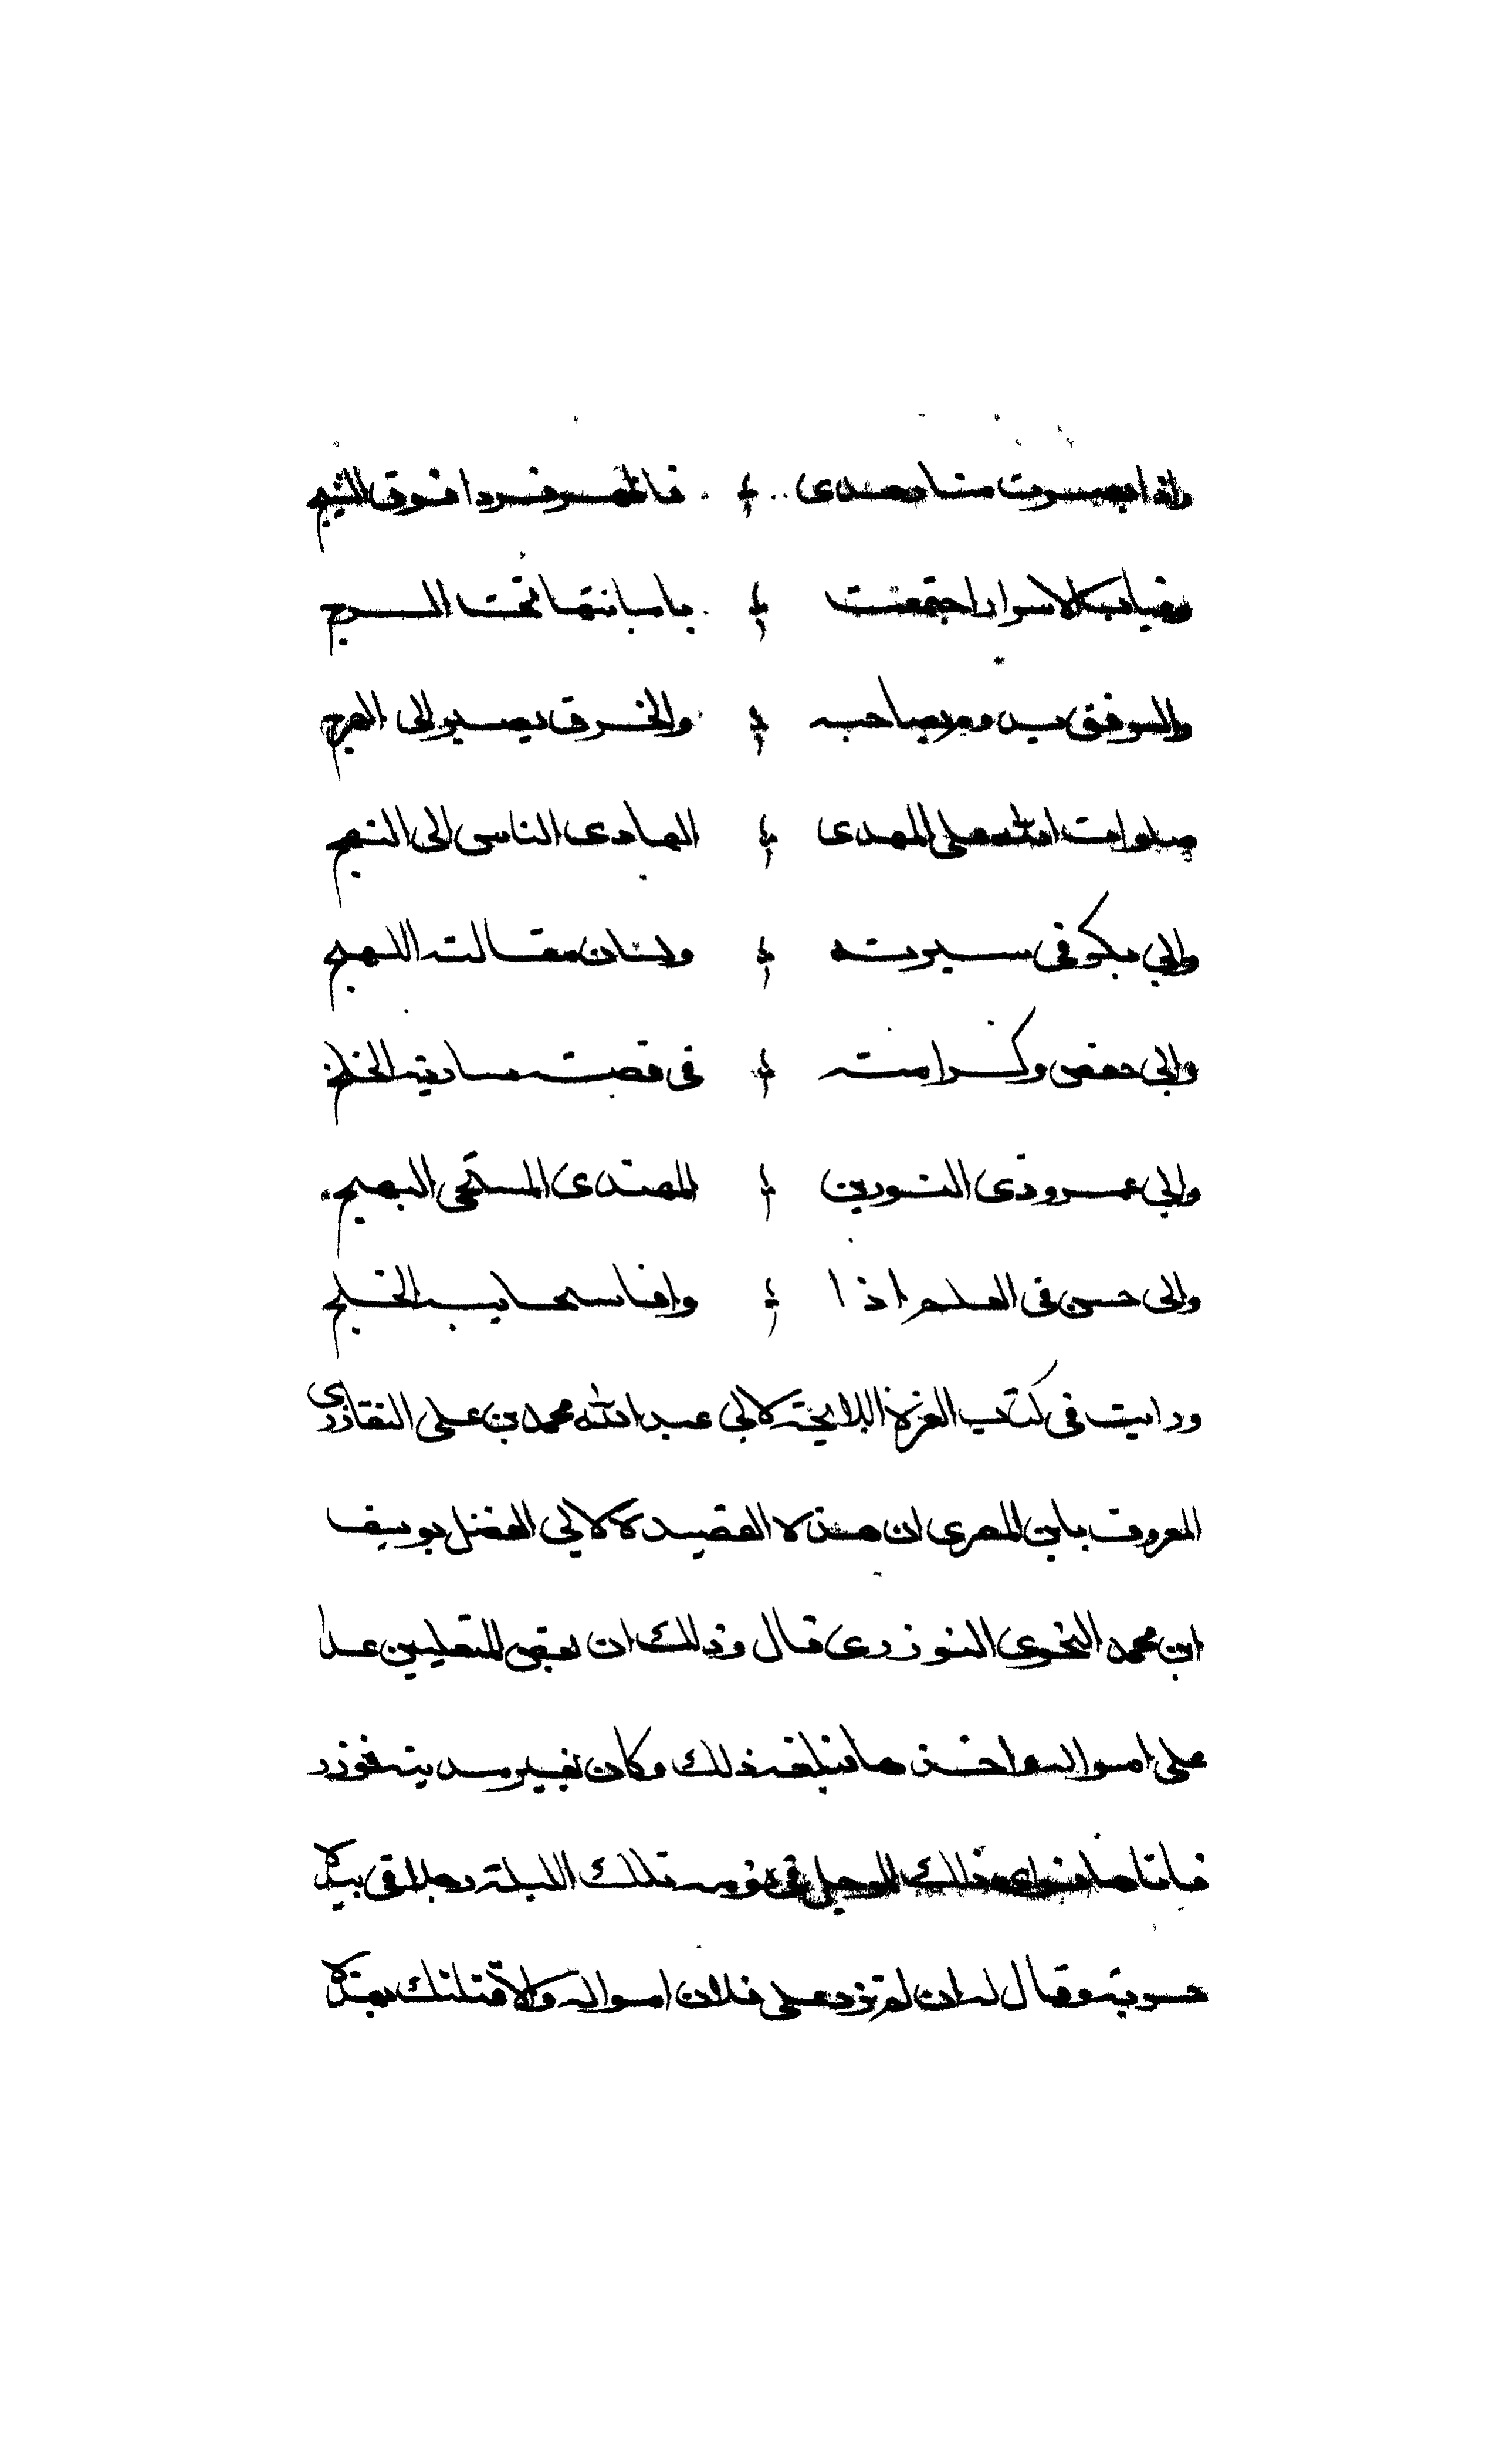 واذا ابصرت منار هدى فاظهر فردا فوق الثبج
وغياب الاسرار اجتمعت بامانتها تحت السرج
والرفق يدوم لصاحبه والخرق يصير الى الهرج
صلوات الله على المهدى الهادى الناس الى النهج
وابي بكر فى سيرته ولسان مقالته اللهج
وابي حفص وكرامته فى قصة سارية الخلج
وابي عمرو ذى النورين المهتدى المستحي البهج
وابي حسن فى العلم اذا وافا بسحايبه الخلج
ورايت فى كتاب الغرة اللايحة لابي عبد الله محمد بن على التقازرى
المعروف بابن المصرى ان هذه القصيدة لابي الفضل يوسف
ابن محمد النحوي التوزرى قال وذلك ان بعض المتغلبين عدا
على امواله واخذها فبلغه ذلك وكان بغير مدينة توزر
فانشاها فراى ذلك الرجل فى نومه تلك الليلة رجلا فى يده
حربة وقال له ان لم ترد على فلان امواله والا قتلتك بهذه